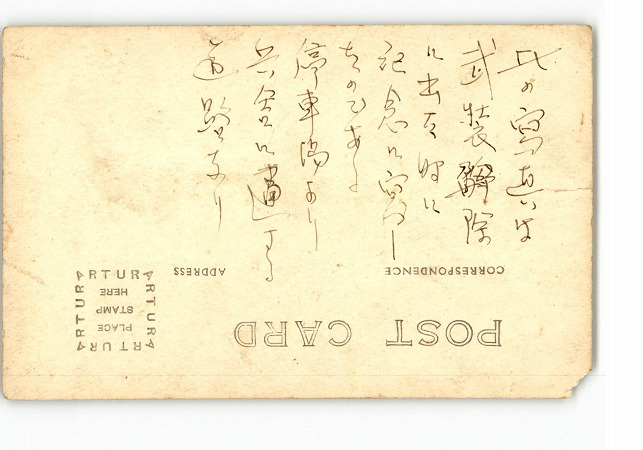 此の寫真は
武装解除
に出る時に
記念に寫し
たのである
停車場より
兵舎に通する
道路なり
POST CARD
CORRESPONDENCE
ADDRESS
ARTURA
ARTURA
ARTURA
ARTURA
PLACE
STAMP
HERE